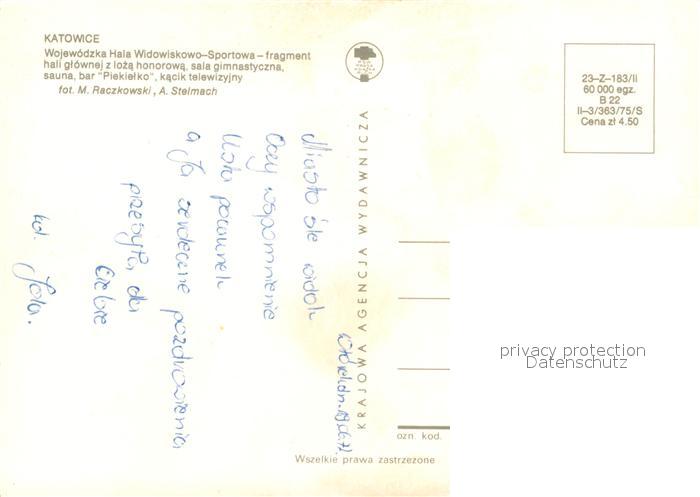 KATOWICE
Wojewódzka Hala Widowiskowo-Sportowa – fragment
hali głównej z lożą honorową, sala gimnastyczna,
sauna, bar "Piekiełko", kącik telewizyjny
fot. M. Raczkowski, A. Stelmach
23–Z–183/II
60 000 egz.
B 22
II–3/363/75/S
Cena zł 4.50
KRAJOWA AGENCJA WYDAWNICZA
Miasto śle widok
Oczy wspomnienie
Usta pocałunek
a Ja serdeczne pozdrowienia
przesyła dla
Ciebie
Jola.
privacy protection
Datenschutz
ozn. kod.
Wszelkie prawa zastrzeżone